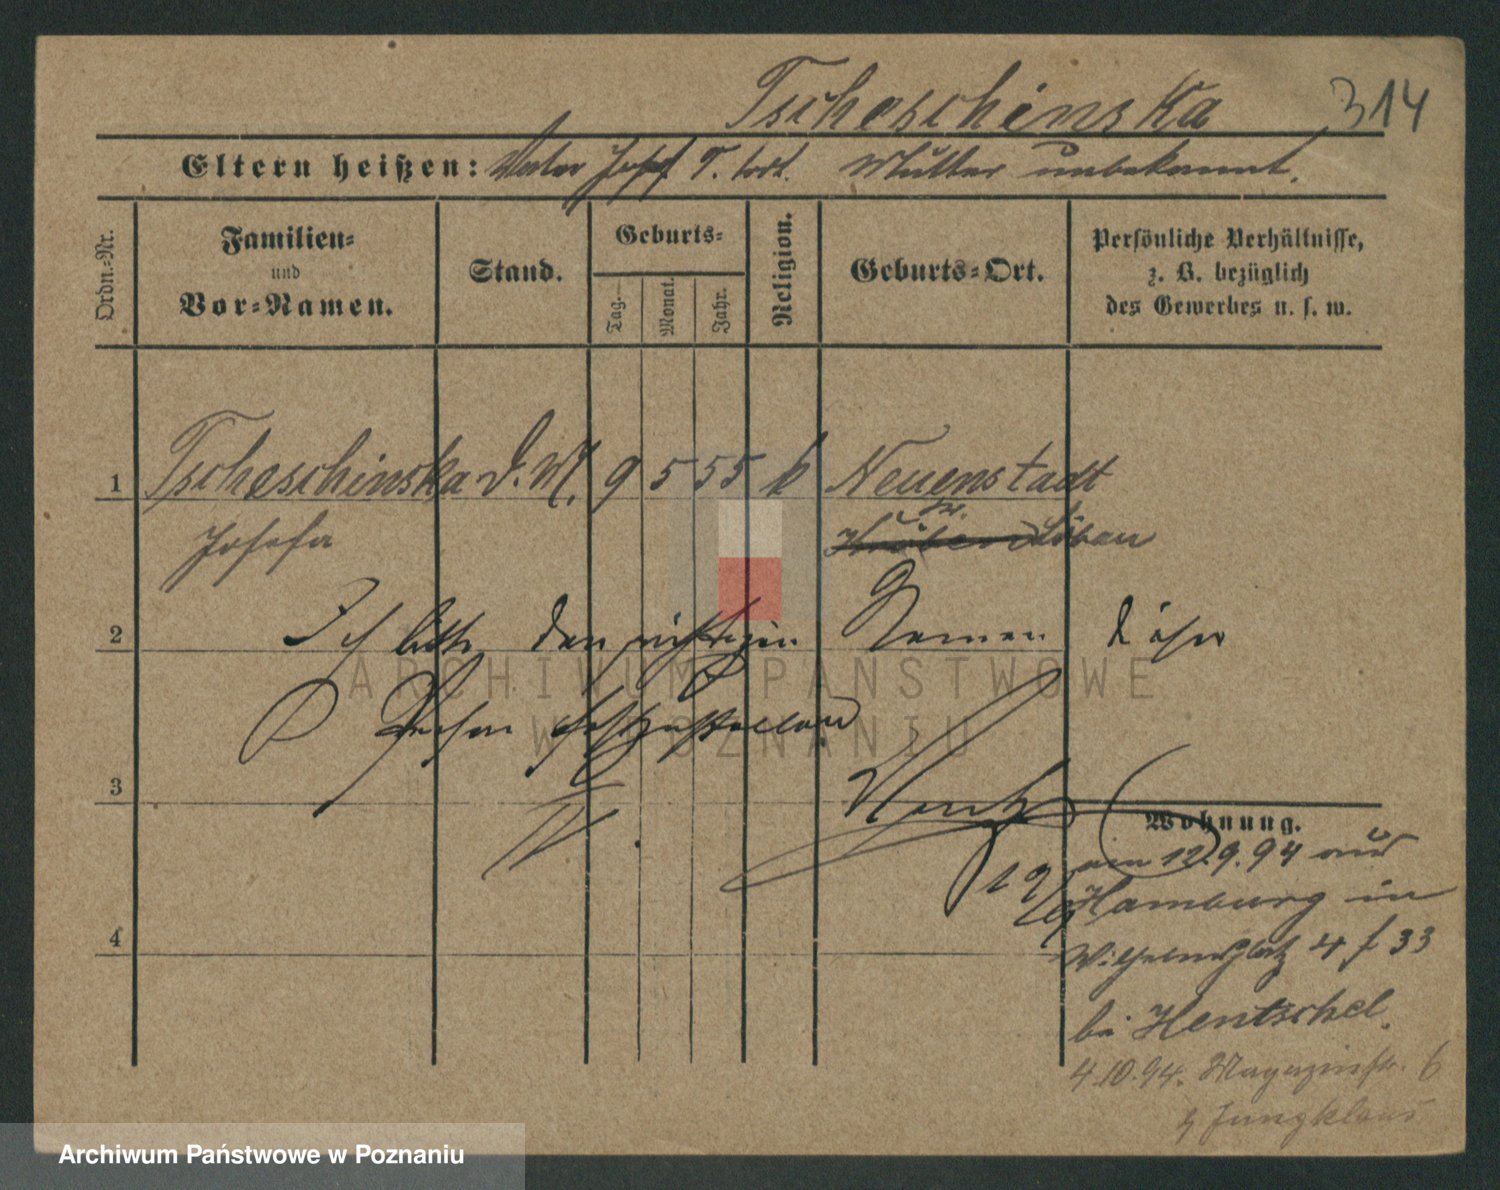 Tscheschinska 314
Eltern heißen: Vater Josef T. todt. Mutter unbekannt.
Ordn.-Nr.
Familien-
und
Vor-Namen.
Stand.
Geburts-
Tag.
Monat.
Jahr.
Religion.
Geburts-Ort.
Persönliche Verhältnisse,
z. B. bezüglich
des Gewerbes u. s. w.
1 Tscheschinska D. M. 9 5 55 k Neuenstadt
Josefa Kr. Löbau
2 Ich bitte den richtigen Namen dieser
Person festzustellen
3
IV.
Wohnung.
am 12.9.94 aus
Hamburg in
Wilhelmsplatz 4 f 33
bei Hentschel.
4
4.10.94. Magazinstr. 6
b Jungklaus
ARCHIWUM PAŃSTWOWE
W POZNANIU
Archiwum Państwowe w Poznaniu